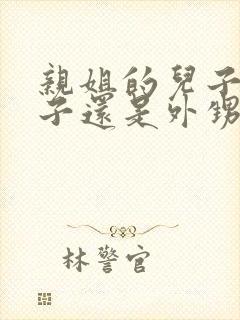 親姐的兒子
子還是外甥
林警官